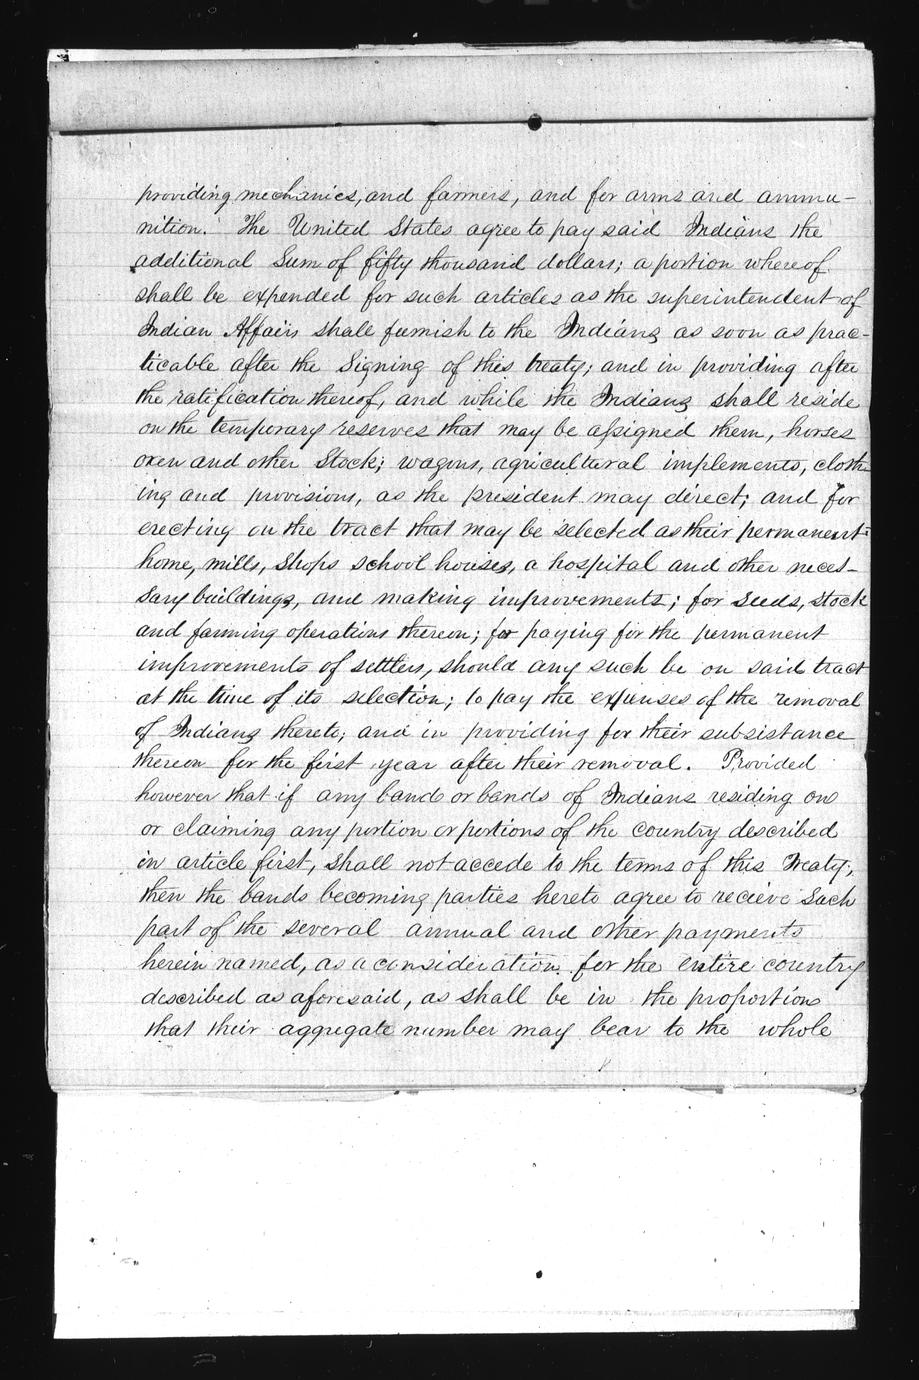 providing mechanics, and farmers, and for arms and ammu-
nition. The United States agree to pay said Indians the
additional Sum of fifty thousand dollars; a portion whereof
shall be expended for such articles as the superintendent of
Indian Affairs shall furnish to the Indians as soon as prac-
ticable after the Signing of this treaty; and in providing after
the ratification thereof, and while the Indians shall reside
on the temporary reserves that may be assigned them, horses
oxen and other Stock; wagons, agricultural implements, cloth-
ing and provisions, as the president may direct; and for
erecting on the tract that may be selected as their permanent
home, mills, shops school houses, a hospital and other neces-
sary buildings, and making improvements; for seeds, stock
and farming operations thereon; for paying for the permanent
improvements of settlers, should any such be on said tract
at the time of its selection; to pay the expenses of the removal
of Indians thereto; and in providing for their subsistance
thereon for the first year after their removal. Provided
however that if any band or bands of Indians residing on
or claiming any portion or portions of the country described
in article first, shall not accede to the terms of this Treaty;
then the bands becoming parties hereto agree to recieve Such
part of the several annual and other payments
herein named, as a consideration for the entire country
described as aforesaid, as shall be in the proportion
that their aggregate number may bear to the whole